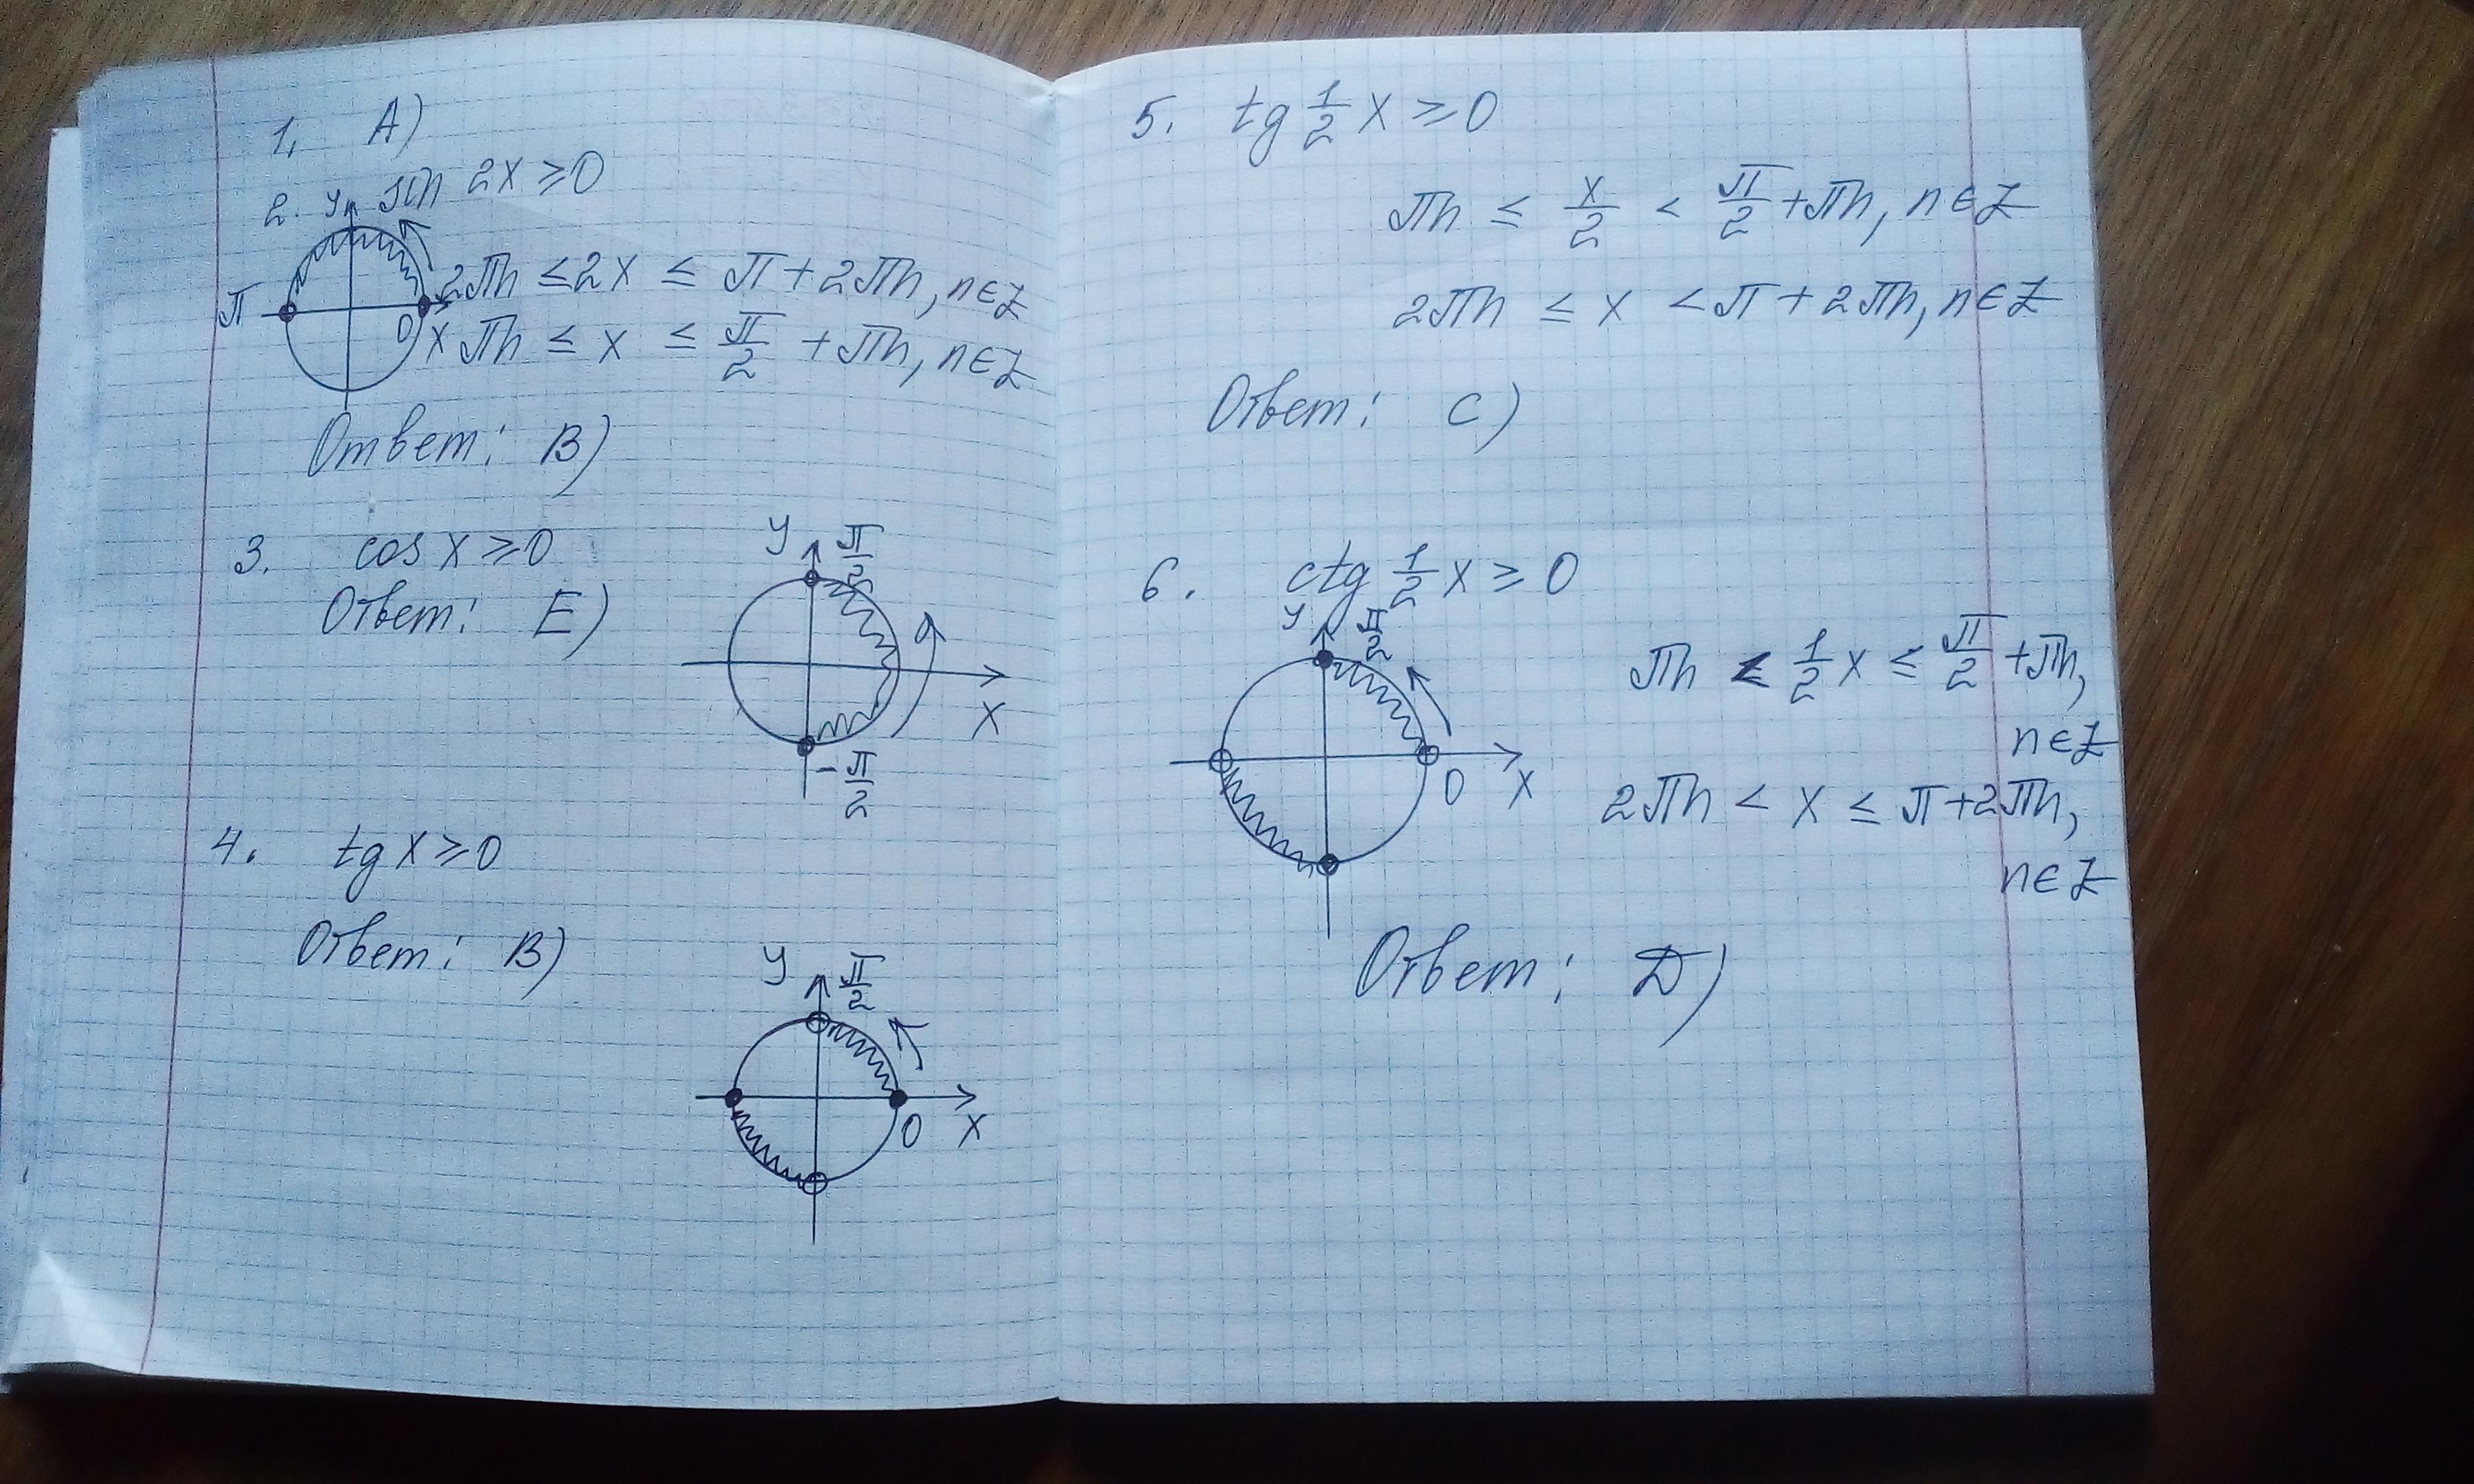 1. A)
2. sin 2x ≥ 0
y
π 0 x
2πn ≤ 2x ≤ π + 2πn, n∈Z
πn ≤ x ≤ π/2 + πn, n∈Z
Ответ: B)
3. cos x ≥ 0
Ответ: E)
y π/2
0
x
-π/2
4. tg x ≥ 0
Ответ: B)
y π/2
0 x
5. tg 1/2 x ≥ 0
πn ≤ x/2 < π/2 + πn, n∈Z
2πn ≤ x < π + 2πn, n∈Z
Ответ: C)
6. ctg 1/2 x ≥ 0
y π/2
0 x
πn < 1/2 x ≤ π/2 + πn,
n∈Z
2πn < x ≤ π + 2πn,
n∈Z
Ответ: D)